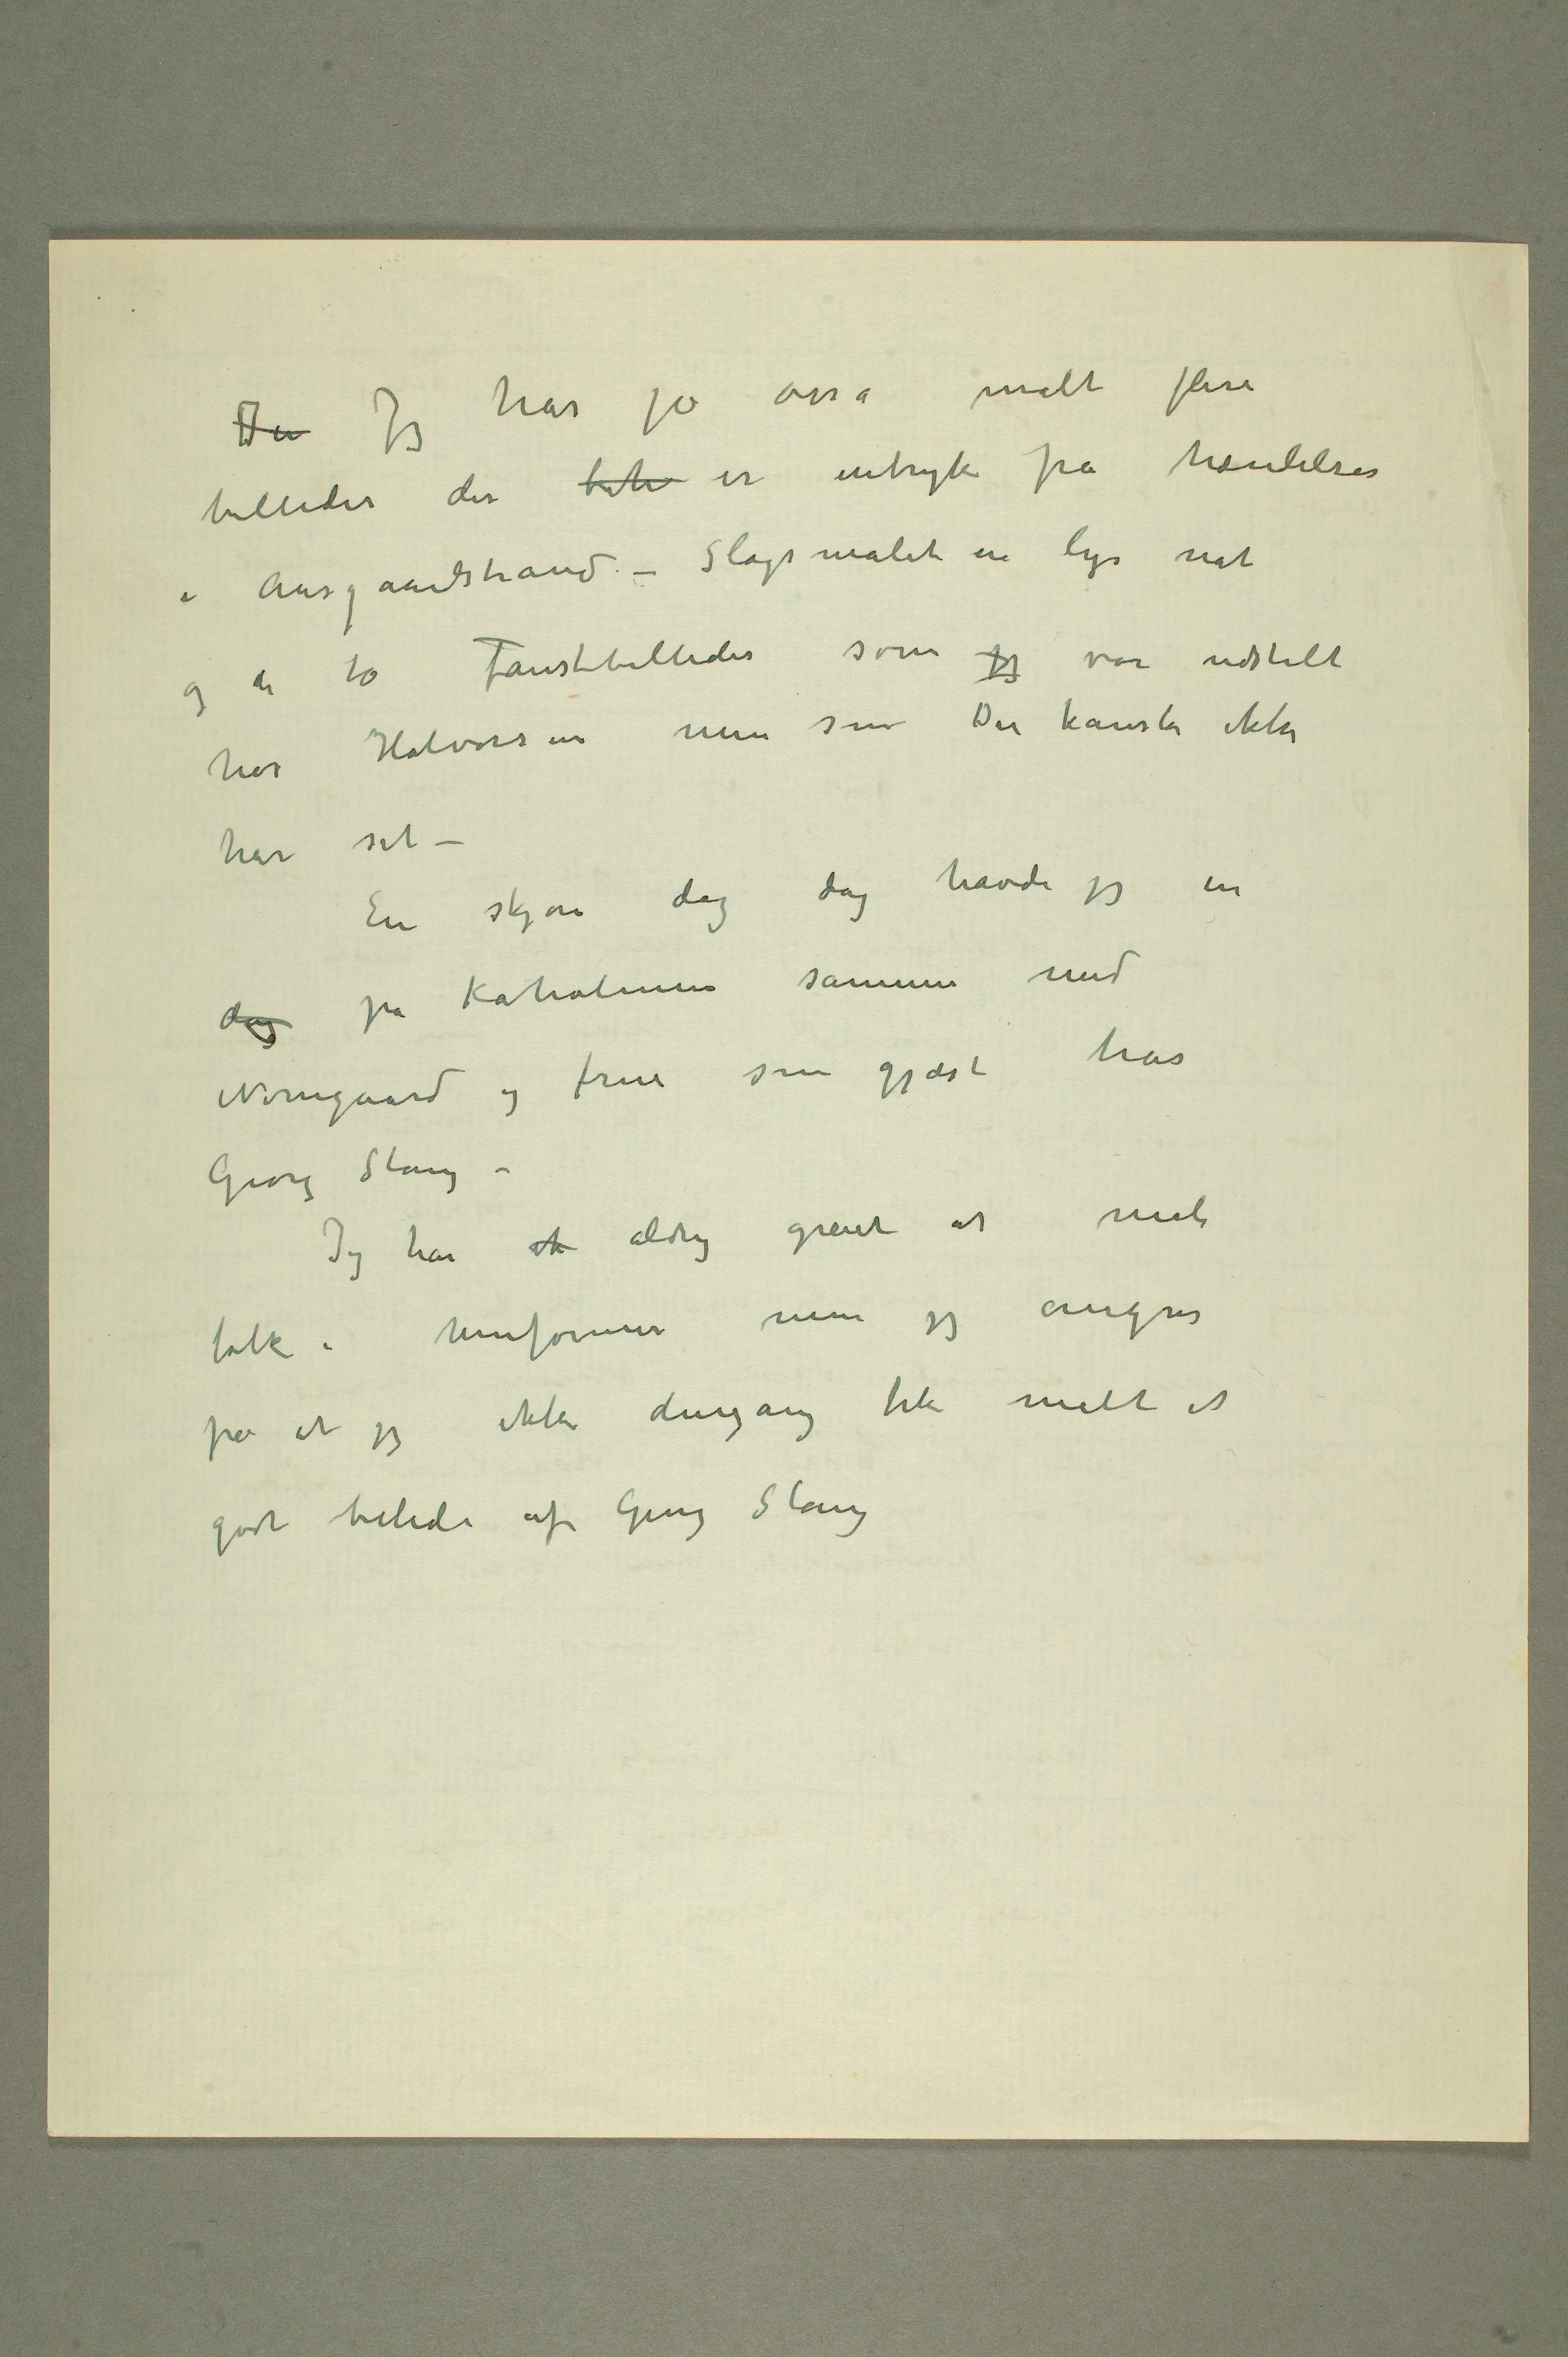 Du Jeg har jo osså malt flere
billeder der beh er intryk fra hændelser
i Aasgaardstrand – Slagsmalet en lys nat
og de to Faustbilleder som jeg var udstilt
hos Halvorsen men som Du kanske ikke
har set –
En skjøn dag dag havde jeg en
dag på Kaholmen sammen med
Nørregaard og frue som gjæst hos
Georg Stang –
Jeg har ik aldrig greiet at male
folk i uniformer men jeg angrer
på at jeg ikke dengang fik malt et
godt billede af Georg Stang